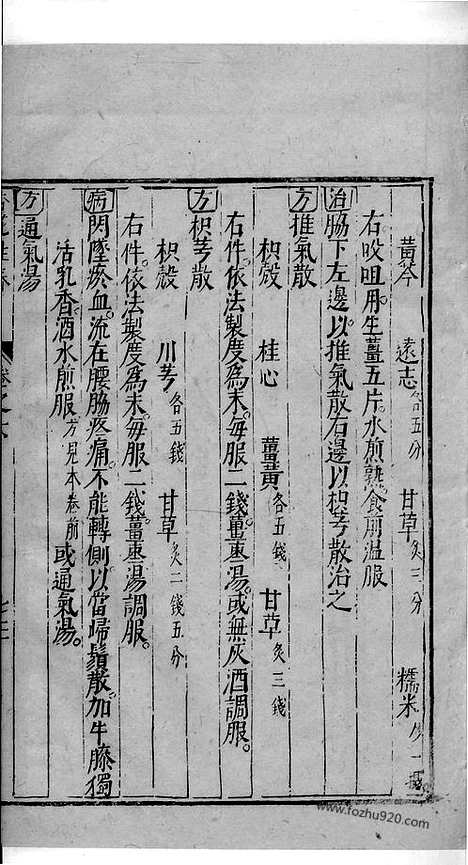 黃芩 遠志各五分 甘草炙三分 糯米
右㕮咀用生薑五片水煎熟食前溫服
治脇下左邊以推氣散右邊以枳芎散治之
方推氣散
枳殼 桂心 薑黃各五錢 甘草炙三錢
右件依法製度爲末每服二錢薑棗湯或無灰酒調服
方枳芎散
枳殼 川芎各五錢 甘草炙二錢五分
右件依法製度爲末每服二錢薑棗湯調服
病閃墜瘀血流在腰脇疼痛不能轉側以當歸鬚散加牛膝獨
活乳香酒水煎服方見本卷前或通氣湯
方通氣湯
卷之六
www.fozhu920.com